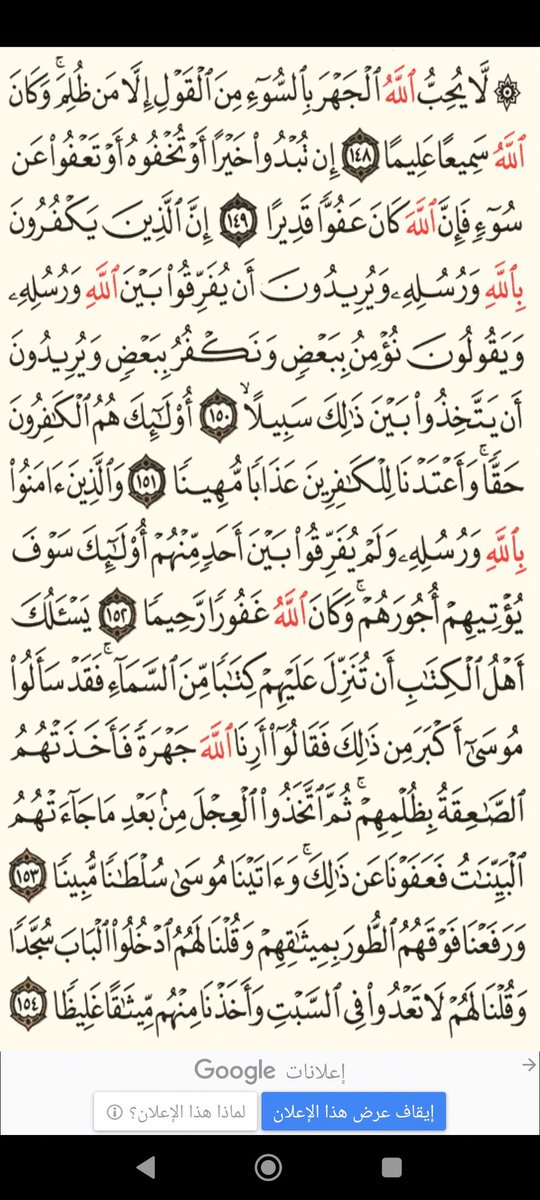 ۞ لَّا يُحِبُّ ٱللَّهُ ٱلۡجَهۡرَ بِٱلسُّوٓءِ مِنَ ٱلۡقَوۡلِ إِلَّا مَن ظُلِمَۚ وَكَانَ
ٱللَّهُ سَمِيعًا عَلِيمًا ١٤٨ إِن تُبۡدُواْ خَيۡرًا أَوۡ تُخۡفُوهُ أَوۡ تَعۡفُواْ عَن
سُوٓءٖ فَإِنَّ ٱللَّهَ كَانَ عَفُوّٗا قَدِيرًا ١٤٩ إِنَّ ٱلَّذِينَ يَكۡفُرُونَ
بِٱللَّهِ وَرُسُلِهِۦ وَيُرِيدُونَ أَن يُفَرِّقُواْ بَيۡنَ ٱللَّهِ وَرُسُلِهِۦ
وَيَقُولُونَ نُؤۡمِنُ بِبَعۡضٖ وَنَكۡفُرُ بِبَعۡضٖ وَيُرِيدُونَ
أَن يَتَّخِذُواْ بَيۡنَ ذَٰلِكَ سَبِيلًاۙ ١٥٠ أُوْلَٰٓئِكَ هُمُ ٱلۡكَٰفِرُونَ
حَقّٗاۚ وَأَعۡتَدۡنَا لِلۡكَٰفِرِينَ عَذَابٗا مُّهِينٗا ١٥١ وَٱلَّذِينَ ءَامَنُواْ
بِٱللَّهِ وَرُسُلِهِۦ وَلَمۡ يُفَرِّقُواْ بَيۡنَ أَحَدٖ مِّنۡهُمۡ أُوْلَٰٓئِكَ سَوۡفَ
يُؤۡتِيهِمۡ أُجُورَهُمۡۚ وَكَانَ ٱللَّهُ غَفُورٗا رَّحِيمٗا ١٥٢ يَسۡـَٔلُكَ
أَهۡلُ ٱلۡكِتَٰبِ أَن تُنَزِّلَ عَلَيۡهِمۡ كِتَٰبٗا مِّنَ ٱلسَّمَآءِۚ فَقَدۡ سَأَلُواْ
مُوسَىٰٓ أَكۡبَرَ مِن ذَٰلِكَ فَقَالُوٓاْ أَرِنَا ٱللَّهَ جَهۡرَةٗ فَأَخَذَتۡهُمُ
ٱلصَّٰعِقَةُ بِظُلۡمِهِمۡۚ ثُمَّ ٱتَّخَذُواْ ٱلۡعِجۡلَ مِنۢ بَعۡدِ مَا جَآءَتۡهُمُ
ٱلۡبَيِّنَٰتُ فَعَفَوۡنَا عَن ذَٰلِكَۚ وَءَاتَيۡنَا مُوسَىٰ سُلۡطَٰنٗا مُّبِينٗا ١٥٣
وَرَفَعۡنَا فَوۡقَهُمُ ٱلطُّورَ بِمِيثَٰقِهِمۡ وَقُلۡنَا لَهُمُ ٱدۡخُلُواْ ٱلۡبَابَ سُجَّدٗا
وَقُلۡنَا لَهُمۡ لَا تَعۡدُواْ فِي ٱلسَّبۡتِ وَأَخَذۡنَا مِنۡهُم مِّيثَٰقًا غَلِيظٗا ١٥٤
إعلانات Google
إيقاف عرض هذا الإعلان
لماذا هذا الإعلان؟